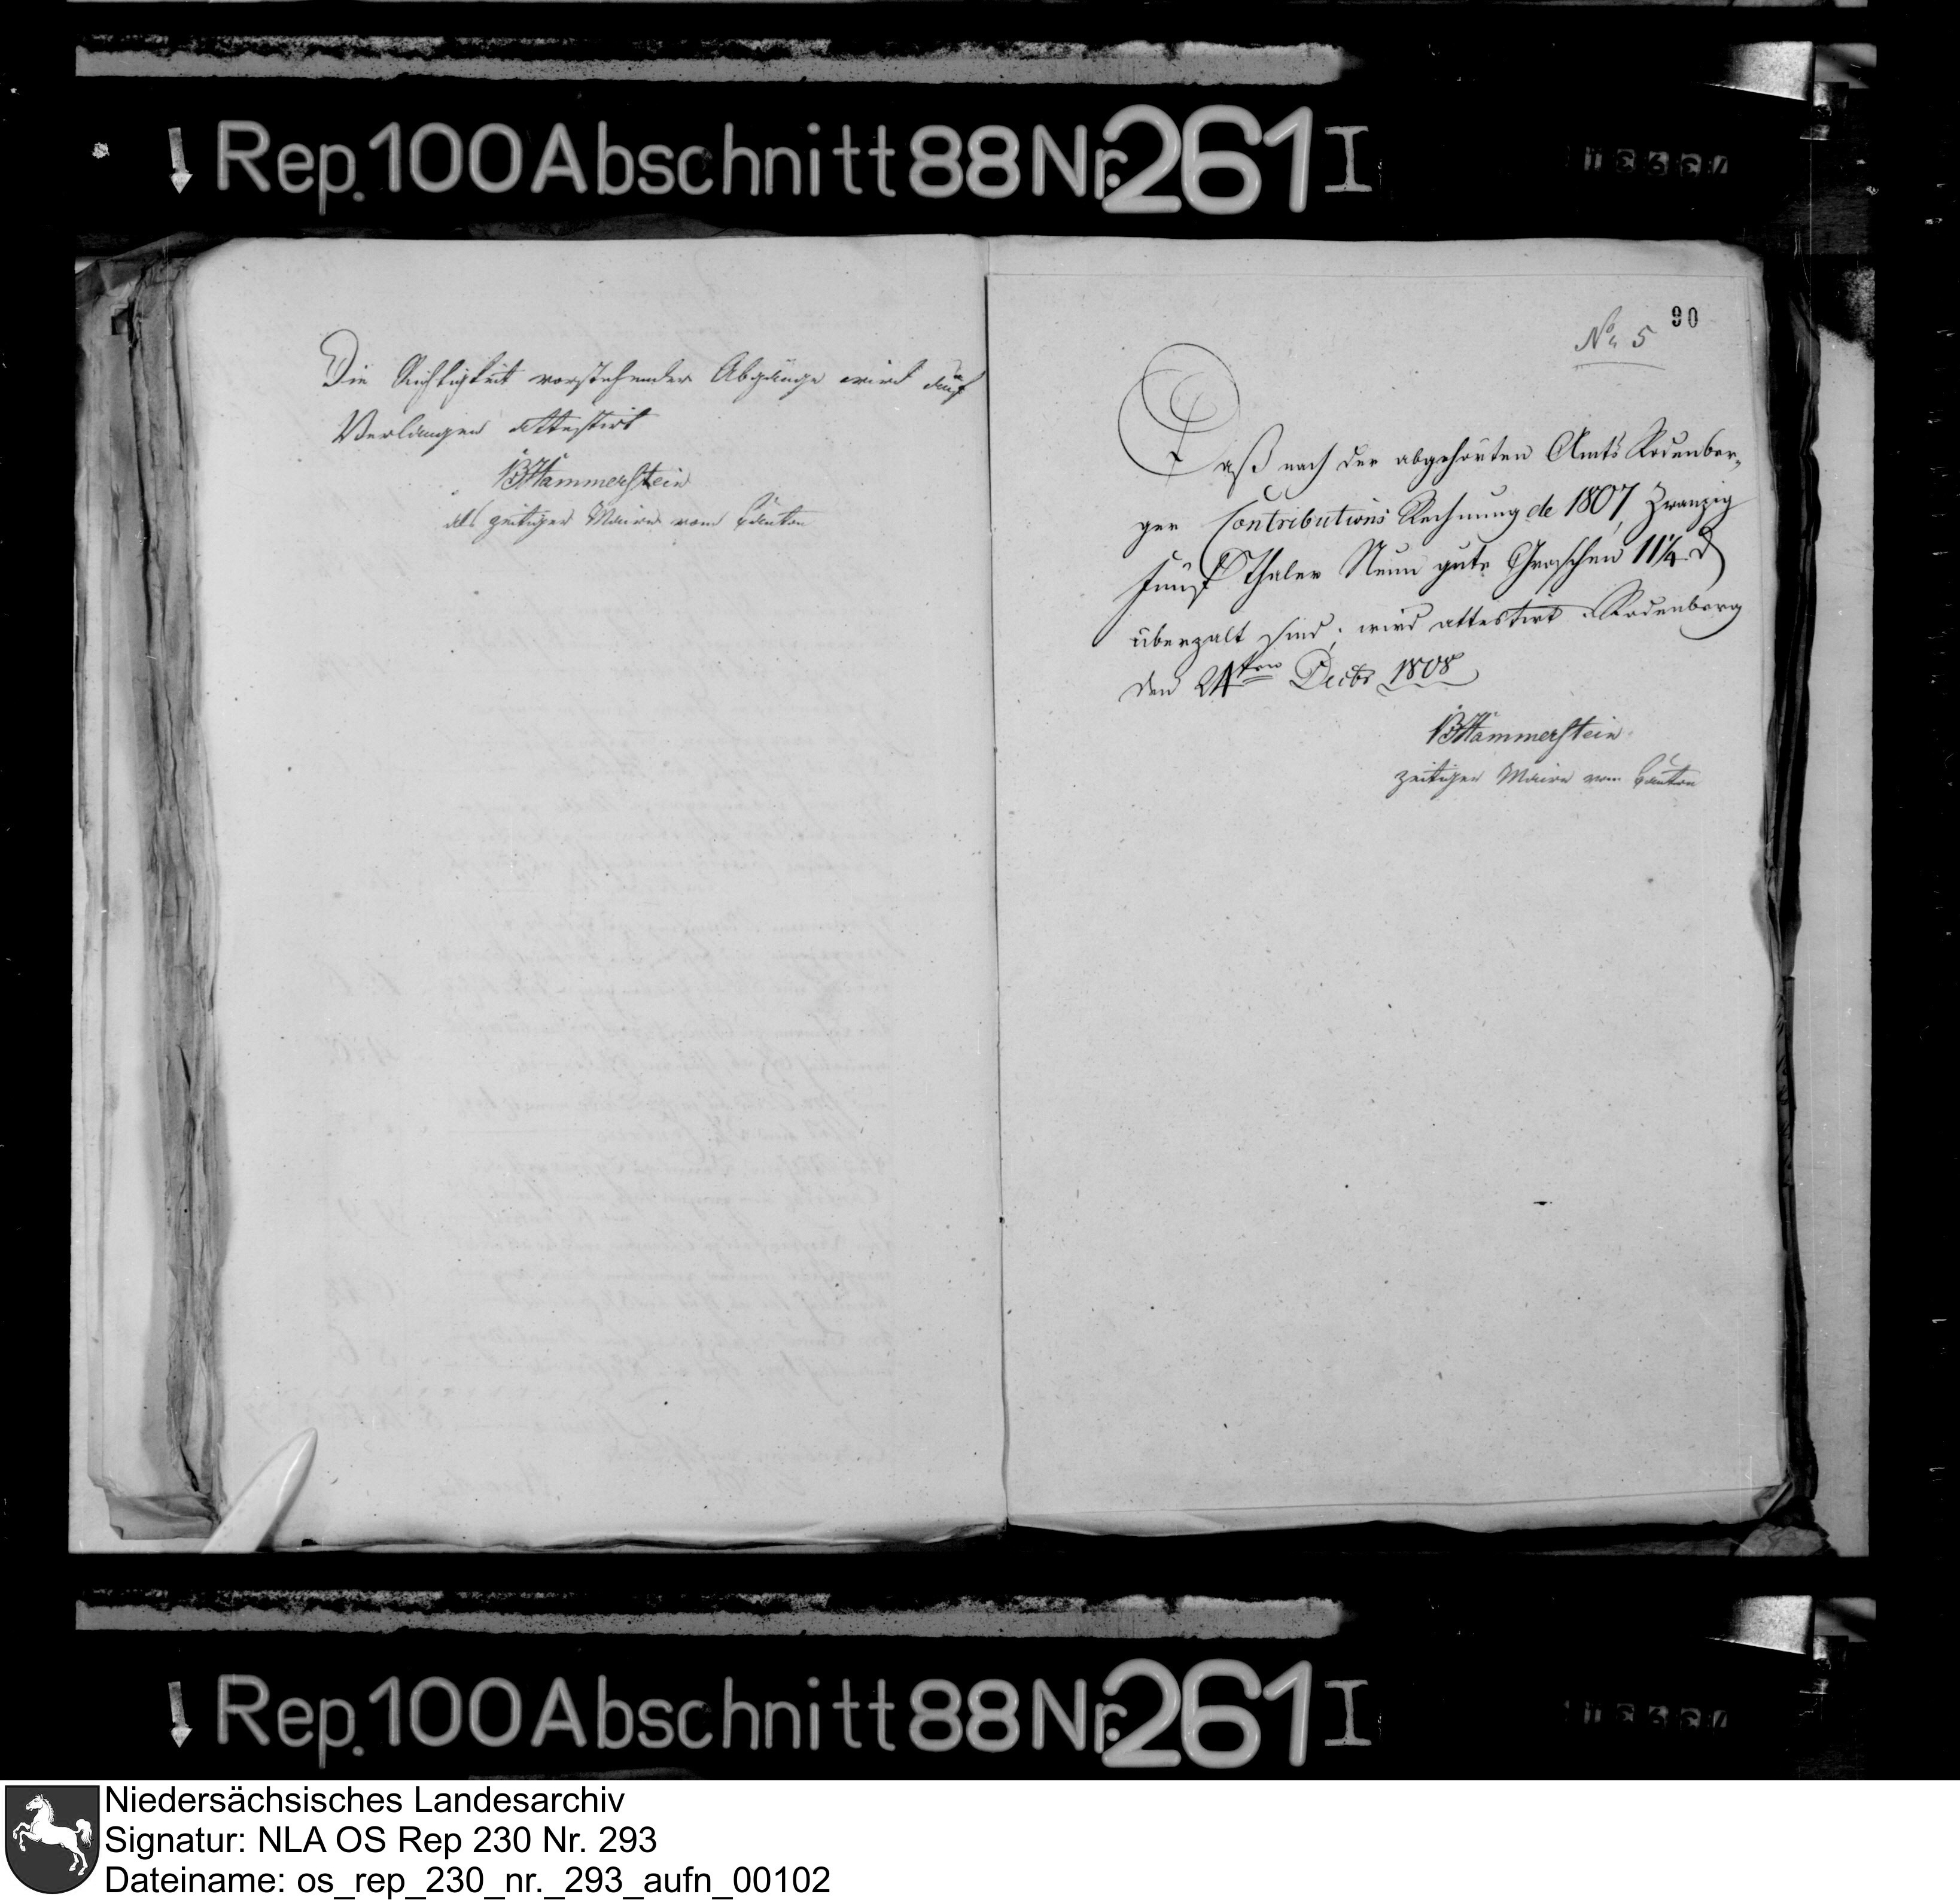 Rep. 100 Abschnitt 88 Nr. 261 I
Die Richtigkeit vorstehender Abgänge wird auf
Verlangen attestirt
BHammerstein
als zeitiger Maire vom Canton
90
No. 5
Daß nach der abgehörten Amts Rodenber-
ger Contributions Rechnung de 1807, Zwanzig
fünf Thaler Neun gute Groschen 11 1/4 d
überzalt sind, wird attestirt Rodenberg
den 24ten Decbr 1808
BHammerstein
zeitiger Maire vom Canton
Rep. 100 Abschnitt 88 Nr. 261 I
Niedersächsisches Landesarchiv
Signatur: NLA OS Rep 230 Nr. 293
Dateiname: os_rep_230_nr._293_aufn_00102